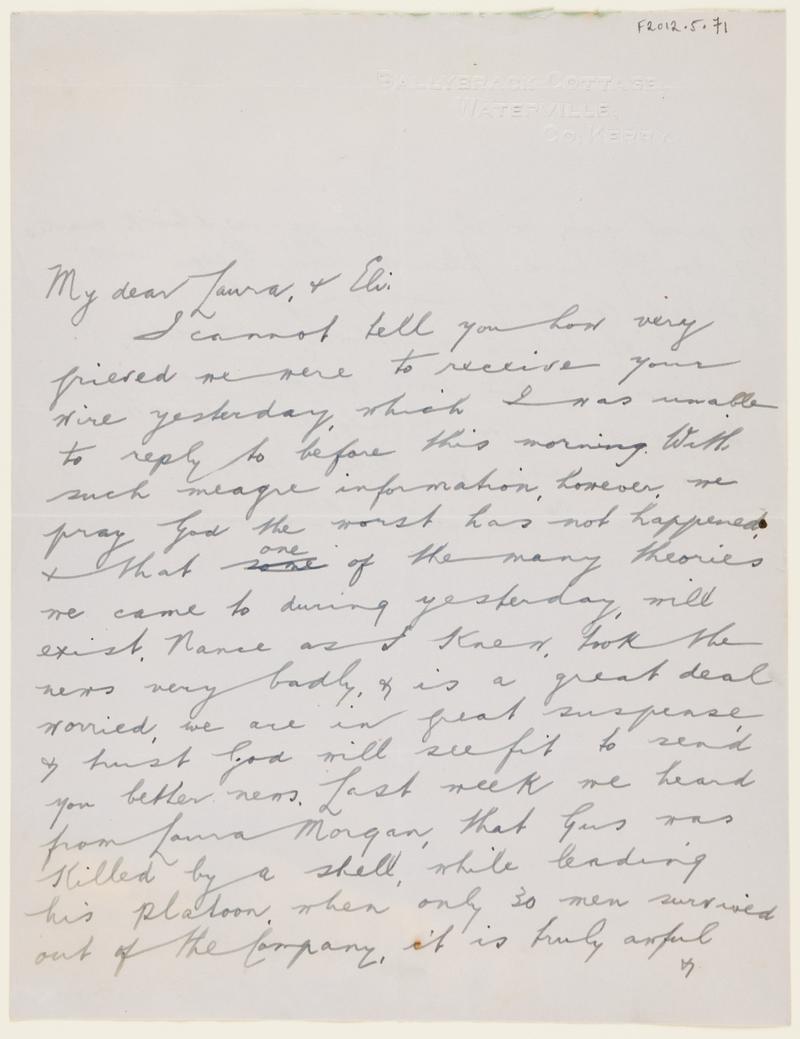 F2012.5.71
BALLYBRACK COTTAGE,
WATERVILLE,
CO. KERRY.
My dear Laura, & Eli.
I cannot tell you how very
grieved we were to receive your
wire yesterday, which I was unable
to reply to before this morning. With
such meagre information, however, we
pray God the worst has not happened,
one
& that some of the many theories
we came to during yesterday, will
exist. Nance as I knew, took the
news very badly, & is a great deal
worried, we are in great suspense,
& trust God will see fit to send
you better news. Last week we heard
from Laura Morgan, that Gus was
killed by a shell, while leading
his platoon, when only 30 men survived
out of the Company, it is truly awful
&